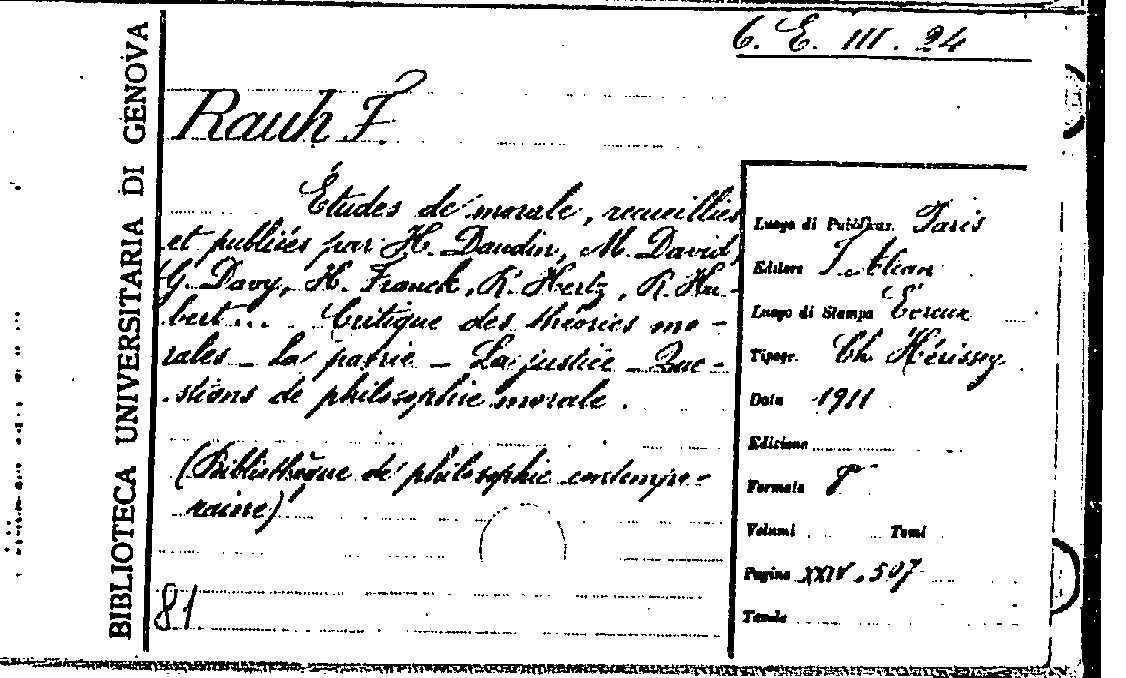 6. E. III. 24
BIBLIOTECA UNIVERSITARIA DI GENOVA
Rauh F.
Études de morale, recueillies
et publiées par H. Daudin, M. David,
G. Davy, H. Franck, R. Hertz, R. Hu-
bert... Critique des théories mo-
rales - La patrie - La justice - Que-
stions de philosophie morale.
(Bibliothèque de philosophie contempo-
raine)
81
Luogo di Pubblicaz. Paris
Editore F. Alcan
Luogo di Stampa Evreux
Tipogr. Ch. Hérissey
Data 1911
Edizione
Formato 8°
Volumi Tomi
Pagine XXIV, 507
Tavole